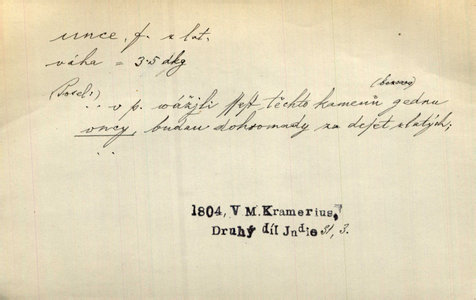 unce, f. z lat.
váha = 3·5 dkg
(bezoary)
(Posel:)
.. v p. wážjli ssest těchto kamenů gednu
vncy, budau dohromady za deset zlatých;
..
1804, V M. Kramerius,
Druhý díl Jndie 31, 3.